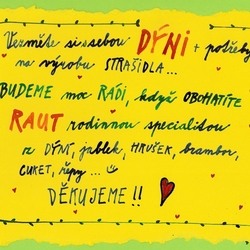 Vezměte si s sebou DÝNI + potřeby
na výrobu STRAŠIDLA...
BUDEME moc RÁDI, když OBOHATÍTE
RAUT rodinnou specialitou
z DÝNÍ, jablek, HRUŠEK, brambor,
CUKET, řepy...
DĚKUJEME!!